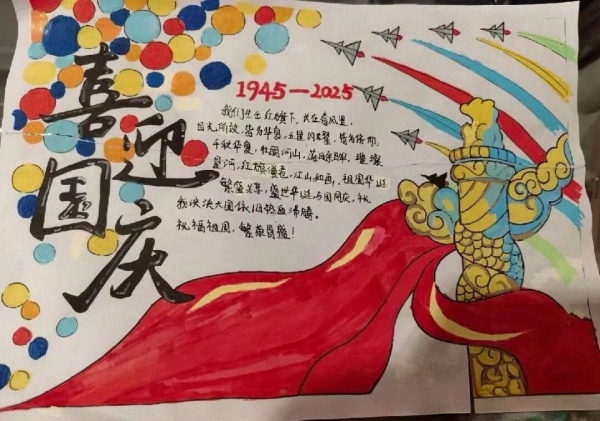 喜迎国庆
1945—2025
我们生于红旗下,长在春风里,
目光所致,皆为华夏,五星闪耀,皆为信仰,
千秋华夏,壮丽河山,
星河,红旗漫卷,江山如画,祖国华诞
繁荣昌盛,盛世华诞,与国同庆,祝
我泱泱大国依旧热血沸腾。
祝福祖国,繁荣昌盛!